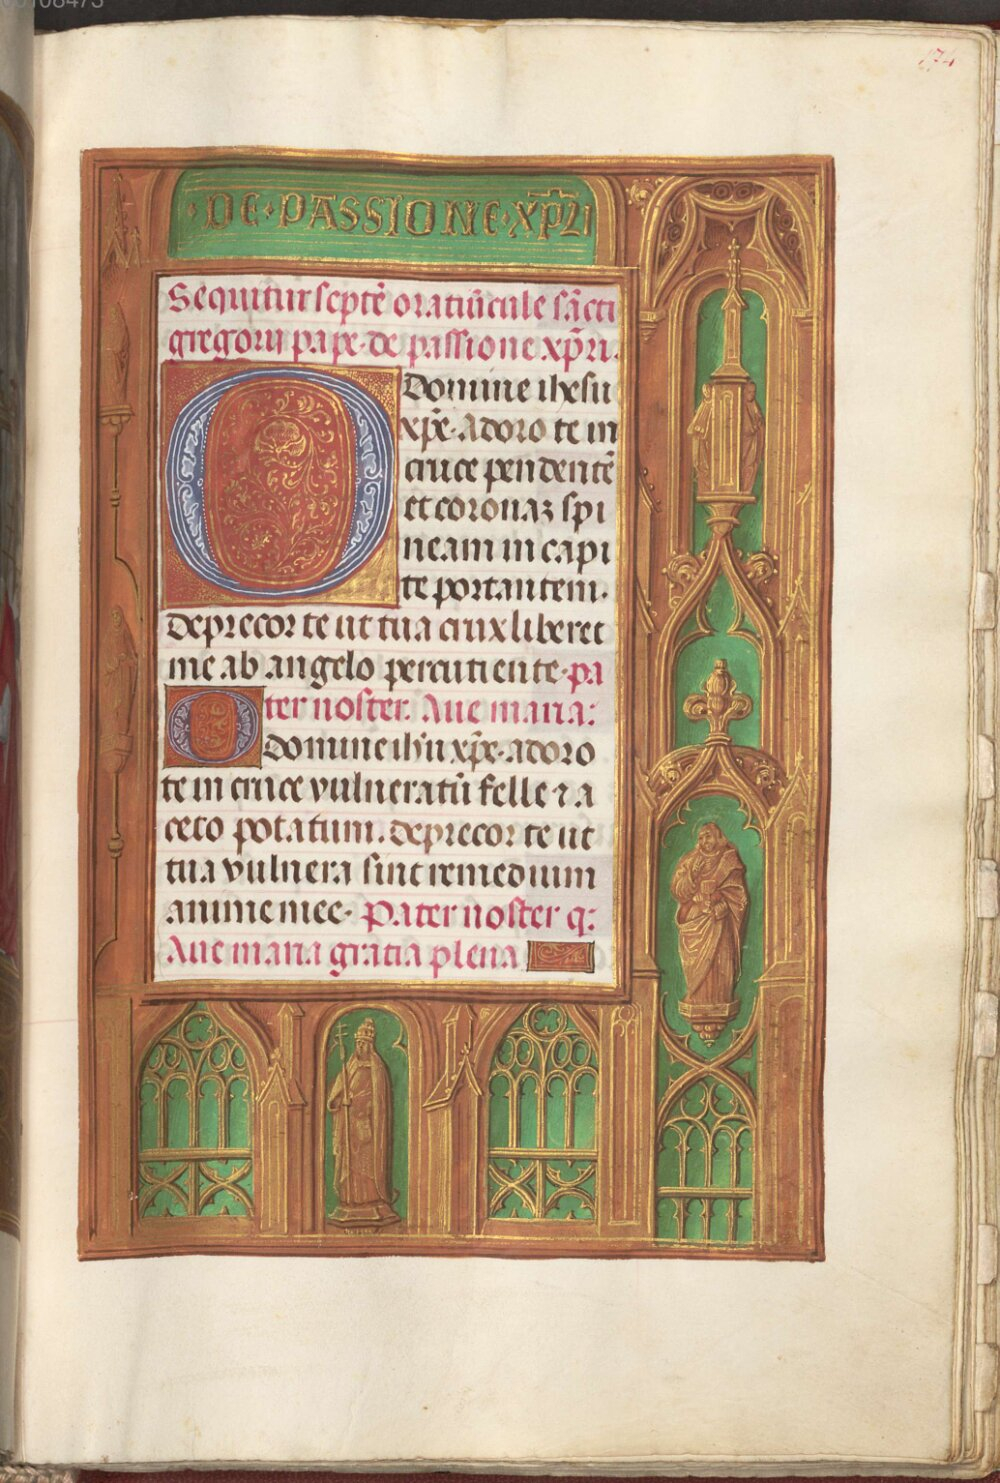 174
·DE·PASSIONE·XP̅ZI
Sequitur septẽ oratiũcule sãcti
gregorii pape·de passione xp̃ri.
O domine ihesu
xp̃e·Adoro te in
cruce pendentẽ
et coronaʒ spi
neam in capi
te portantem·
deprecor te ut tua crux liberet
me ab angelo percutiente·pa
ter noster. Aue maria:
O domine ih̃u xp̃e·adoro
te in cruce vulneratũ felle ⁊ a
ceto potatum. deprecor te ut
tua vulnera sint remedium
anime mee· Pater noster q:
Aue maria gratia plena